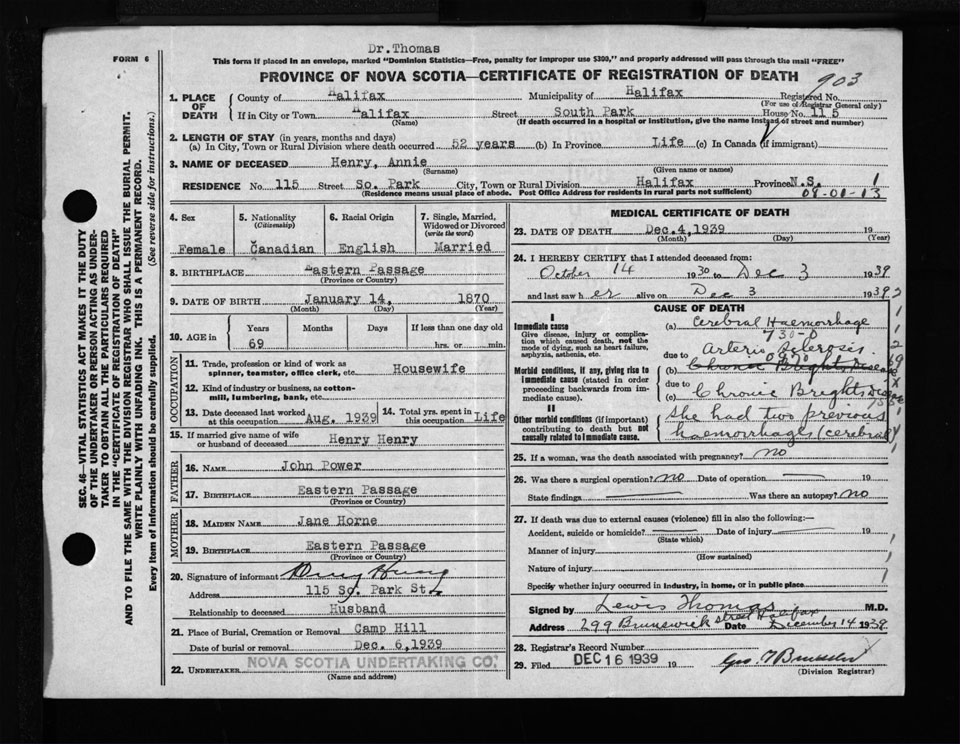 Dr. Thomas
FORM 6
This form if placed in an envelope, marked "Dominion Statistics—Free, penalty for improper use $300," and properly addressed will pass through the mail "FREE"
PROVINCE OF NOVA SCOTIA—CERTIFICATE OF REGISTRATION OF DEATH
903
1. PLACE OF DEATH
County of Halifax Municipality of Halifax Registered No.
(For use of Registrar General only)
If in City or Town Halifax Street South Park House No. 115
(Name) (If death occurred in a hospital or institution, give the name instead of street and number)
2. LENGTH OF STAY (in years, months and days)
(a) In City, Town or Rural Division where death occurred 52 years (b) In Province Life (c) In Canada (if immigrant)
3. NAME OF DECEASED Henry, Annie
(Surname) (Given name or names)
RESIDENCE No. 115 Street So. Park City, Town or Rural Division Halifax Province N.S. 1
(Residence means usual place of abode. Post Office Address for residents in rural parts not sufficient) 08-01-13
SEC. 46—VITAL STATISTICS ACT MAKES IT THE DUTY
OF THE UNDERTAKER OR PERSON ACTING AS UNDER-
TAKER TO OBTAIN ALL THE PARTICULARS REQUIRED
IN THE "CERTIFICATE OF REGISTRATION OF DEATH"
AND TO FILE THE SAME WITH THE DIVISION REGISTRAR WHO SHALL ISSUE THE BURIAL PERMIT.
WRITE PLAINLY WITH UNFADING INK. THIS IS A PERMANENT RECORD.
Every item of information should be carefully supplied. (See reverse side for instructions.)
4. Sex
Female
5. Nationality
(Citizenship)
Canadian
6. Racial Origin
English
7. Single, Married,
Widowed or Divorced
(write the word)
Married
8. BIRTHPLACE Eastern Passage
(Province or Country)
9. DATE OF BIRTH January 14, 1870
(Month) (Day) (Year)
10. AGE in
Years Months Days If less than one day old
69 hrs. or min.
OCCUPATION
11. Trade, profession or kind of work as
spinner, teamster, office clerk, etc. Housewife
12. Kind of industry or business, as cotton-
mill, lumbering, bank, etc.
13. Date deceased last worked
at this occupation Aug. 1939
14. Total yrs. spent in
this occupation Life
15. If married give name of wife
or husband of deceased Henry Henry
FATHER
16. NAME John Power
17. BIRTHPLACE Eastern Passage
(Province or Country)
MOTHER
18. MAIDEN NAME Jane Horne
19. BIRTHPLACE Eastern Passage
(Province or Country)
20. Signature of informant
Address 115 So. Park St.
Relationship to deceased Husband
21. Place of Burial, Cremation or Removal Camp Hill
Date of burial or removal Dec. 6, 1939
22. UNDERTAKER NOVA SCOTIA UNDERTAKING CO.
(Name and address)
MEDICAL CERTIFICATE OF DEATH
23. DATE OF DEATH Dec. 4, 1939 19
(Month) (Day) (Year)
24. I HEREBY CERTIFY that I attended deceased from:
October 14 1930 to Dec 3 1939
and last saw her alive on Dec 3 1939
CAUSE OF DEATH
I
Immediate cause
Give disease, injury or complica-
tion which caused death, not the
mode of dying, such as heart failure,
asphyxia, asthenia, etc.
(a) Cerebral Haemorrhage
due to Arterio Sclerosis
Morbid conditions, if any, giving rise to
immediate cause (stated in order
proceeding backwards from im-
mediate cause).
(b) Chronic Brights Disease
due to
(c) Chronic Brights Disease
II
Other morbid conditions (if important)
contributing to death but not
causally related to immediate cause.
She had two previous
haemorrhages (cerebral)
25. If a woman, was the death associated with pregnancy? no
26. Was there a surgical operation? No Date of operation 19
State findings Was there an autopsy? No
27. If death was due to external causes (violence) fill in also the following:—
Accident, suicide or homicide? Date of injury 19
(State which)
Manner of injury
(How sustained)
Nature of injury
Specify whether injury occurred in industry, in home, or in public place
Signed by Lewis Thomas M.D.
Address 299 Brunswick street Halifax Date December 14 1939
28. Registrar's Record Number
29. Filed DEC 16 1939 19
(Division Registrar)